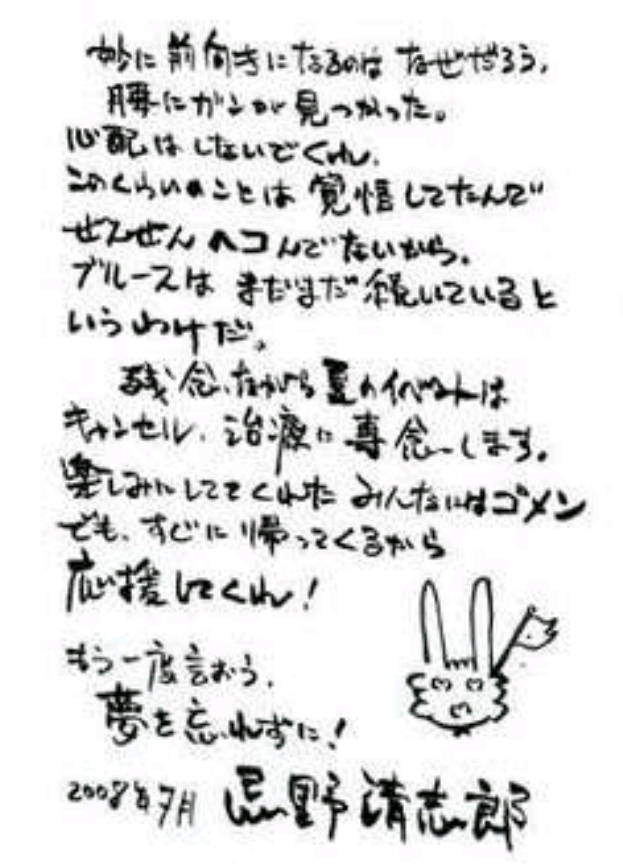 妙に前向きになるのは なぜだろう、
腰にガンが見つかった。
心配はしないでくれ、
このくらいのことは覚悟してたんで
ぜんぜんヘコんでないから。
ブルースはまだまだ続いていると
いうわけだ。
残念ながら夏のイベントは
キャンセル、治療に専念します。
楽しみにしててくれたみんなにはゴメン
でも、すぐに帰ってくるから
応援してくれ!
もう一度言おう、
夢を忘れずに!
2008年7月 忌野清志郎